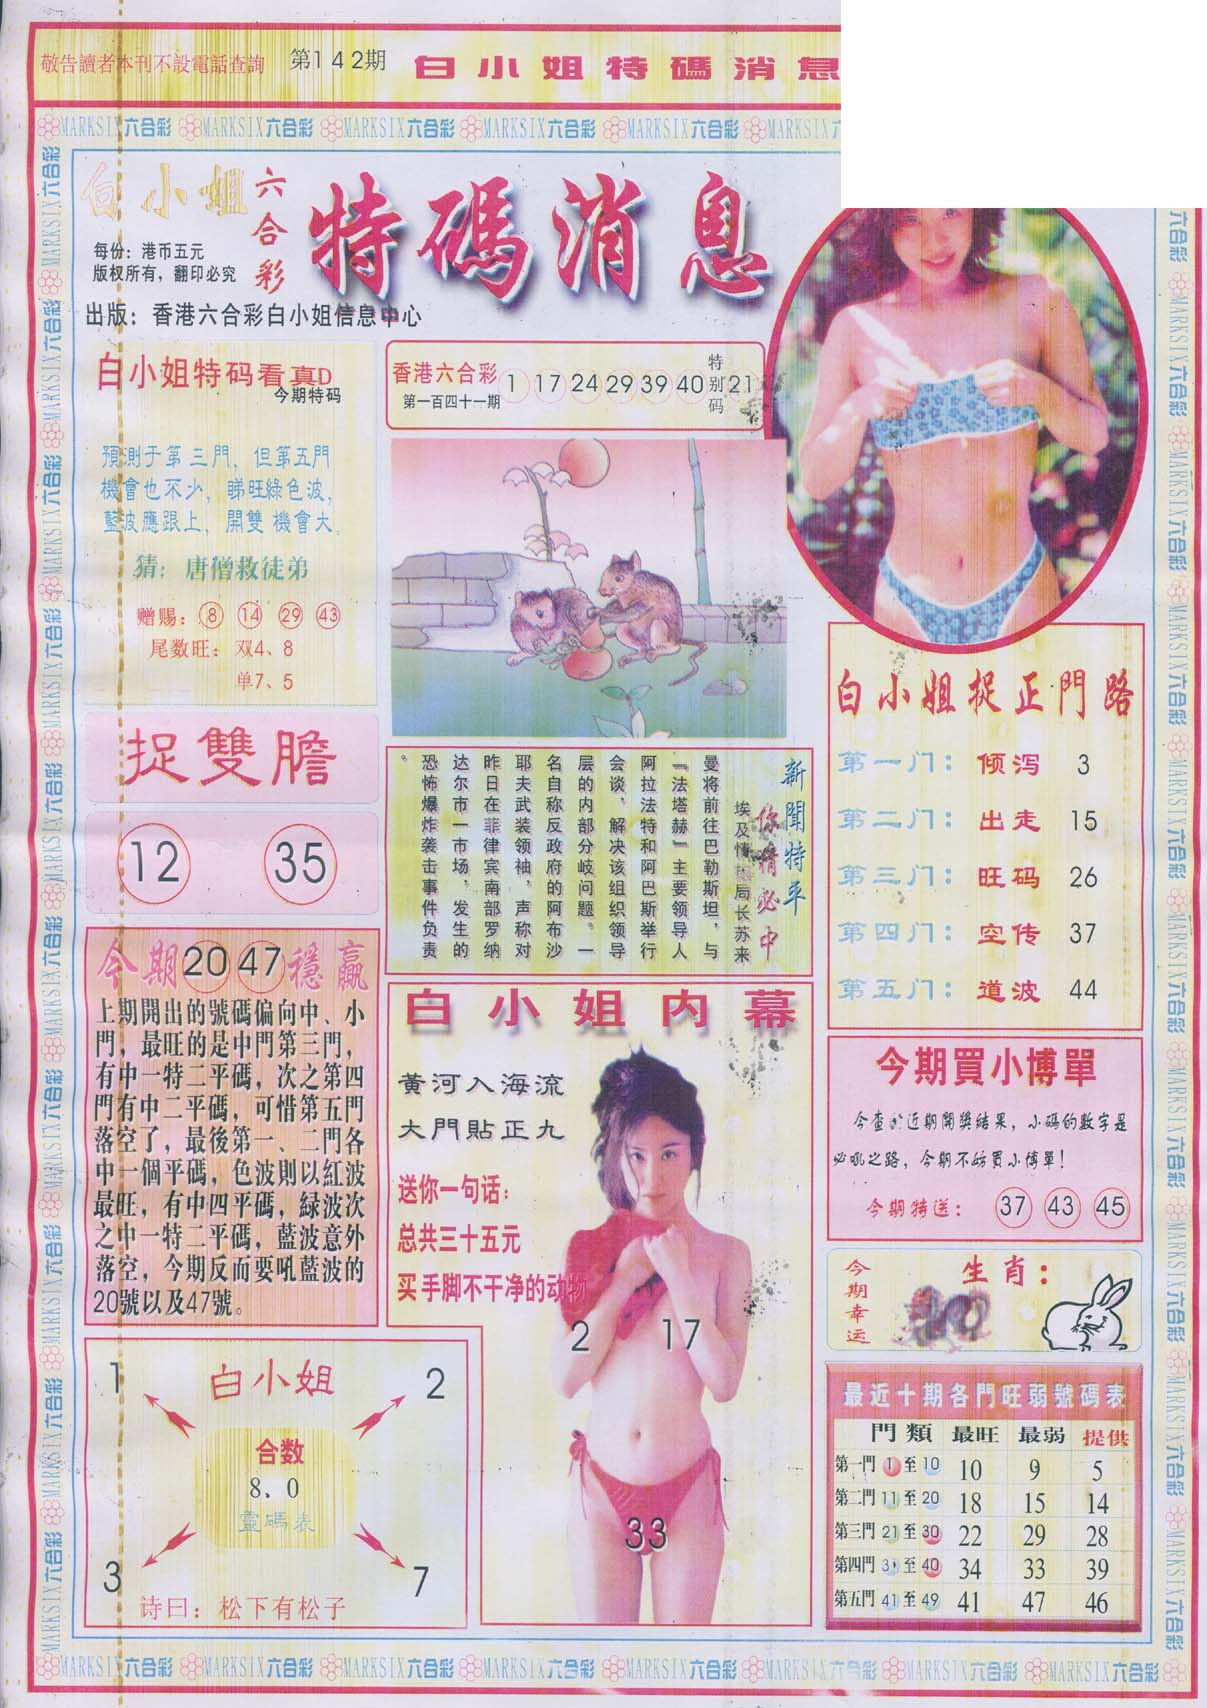 敬告讀者本刊不設電話查詢 第142期 白小姐特碼消息
MARKSIX六合彩 MARKSIX六合彩 MARKSIX六合彩 MARKSIX六合彩 MARKSIX六合彩
白小姐 六合彩 特碼消息
每份：港币五元
版权所有，翻印必究
出版：香港六合彩白小姐信息中心
白小姐特码看真D
今期特码
預測于第三門，但第五門
機會也不少，睇旺綠色波，
藍波應跟上，開雙機會大。
猜：唐僧救徒弟
赠赐：8 14 29 43
尾数旺：双4、8
单7、5
香港六合彩
第一百四十一期
1 17 24 29 39 40 特别码 21
捉雙膽
12 35
新聞特平
你猜必中
埃及情报局长苏来
曼将前往巴勒斯坦，与
“法塔赫”主要领导人
阿拉法特和阿巴斯举行
会谈，解决该组织领导
层的内部分岐问题。一
名自称反政府的阿布沙
耶夫武装领袖，声称对
昨日在菲律宾南部罗纳
达尔市一市场，发生的
恐怖爆炸袭击事件负责
。
白小姐捉正門路
第一门：倾泻 3
第二门：出走 15
第三门：旺码 26
第四门：空传 37
第五门：道波 44
今期 20 47 穩贏
上期開出的號碼偏向中、小
門，最旺的是中門第三門，
有中一特二平碼，次之第四
門有中二平碼，可惜第五門
落空了，最後第一、二門各
中一個平碼，色波則以紅波
最旺，有中四平碼，緑波次
之中一特二平碼，藍波意外
落空，今期反而要吼藍波的
20號以及47號。
白小姐内幕
黄河入海流
大門貼正九
送你一句话：
总共三十五元
买手脚不干净的动物
2 17
33
今期買小博單
今查近期開獎结果，小碼的數字是
必吼之路，今期不妨買小博單！
今期特送：37 43 45
今期幸运
生肖：
1 白小姐 2
合数
8、0
靈碼表
3 7
诗曰：松下有松子
最近十期各門旺弱號碼表
門類 最旺 最弱 提供
第一門 1 至 10 10 9 5
第二門 11 至 20 18 15 14
第三門 21 至 30 22 29 28
第四門 31 至 40 34 33 39
第五門 41 至 49 41 47 46
MARKSIX六合彩 MARKSIX六合彩 MARKSIX六合彩 MARKSIX六合彩 MARKSIX六合彩 MARKSIX六合彩 MARKSIX六合彩 MARKSIX六合彩